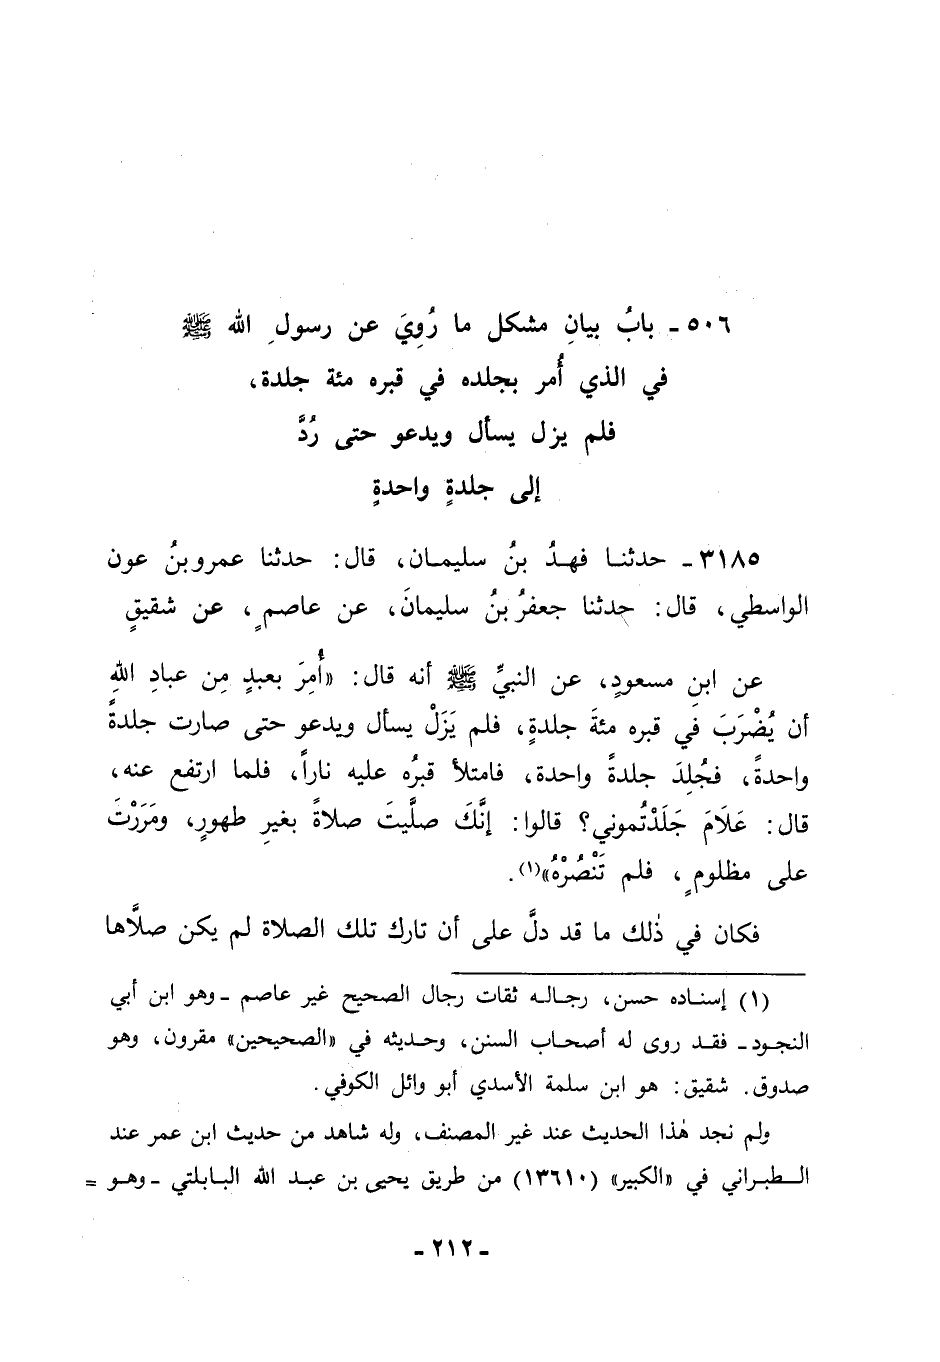 ٥٠٦ ـ بابُ بيانِ مشكل ما رُوِيَ عن رسولِ الله ﷺ
في الذي أُمر بجلده في قبره مئة جلدة،
فلم يزل يسأل ويدعو حتى رُدَّ
إلى جلدةٍ واحدةٍ
٣١٨٥ ـ حدثنا فهدُ بنُ سليمان، قال: حدثنا عمرو بنُ عون
الواسطي، قال: حدثنا جعفرُ بنُ سليمانَ، عن عاصمٍ، عن شقيقٍ
عن ابنِ مسعودٍ، عن النبيِّ ﷺ أنه قال: «أُمِرَ بعبدٍ مِن عبادِ اللهِ
أن يُضْرَبَ في قبره مئةَ جلدةٍ، فلم يَزَلْ يسأل ويدعو حتى صارت جلدةً
واحدةً، فجُلِدَ جلدةً واحدة، فامتلأ قبرُه عليه ناراً، فلما ارتفع عنه،
قال: عَلَامَ جَلَدْتُموني؟ قالوا: إنَّكَ صلَّيتَ صلاةً بغيرِ طهورٍ، ومَرَرْتَ
على مظلومٍ، فلم تَنْصُرْهُ»(١).
فكان في ذٰلك ما قد دلَّ على أن تارك تلك الصلاة لم يكن صلَّاها
(١) إسناده حسن، رجاله ثقات رجال الصحيح غير عاصم ـ وهو ابن أبي
النجود ـ فقد روى له أصحاب السنن، وحديثه في «الصحيحين» مقرون، وهو
صدوق. شقيق: هو ابن سلمة الأسدي أبو وائل الكوفي.
ولم نجد هٰذا الحديث عند غير المصنف، وله شاهد من حديث ابن عمر عند
الطبراني في «الكبير» (١٣٦١٠) من طريق يحيى بن عبد الله البابلتي ـ وهو =
ـ ٢١٢ ـ